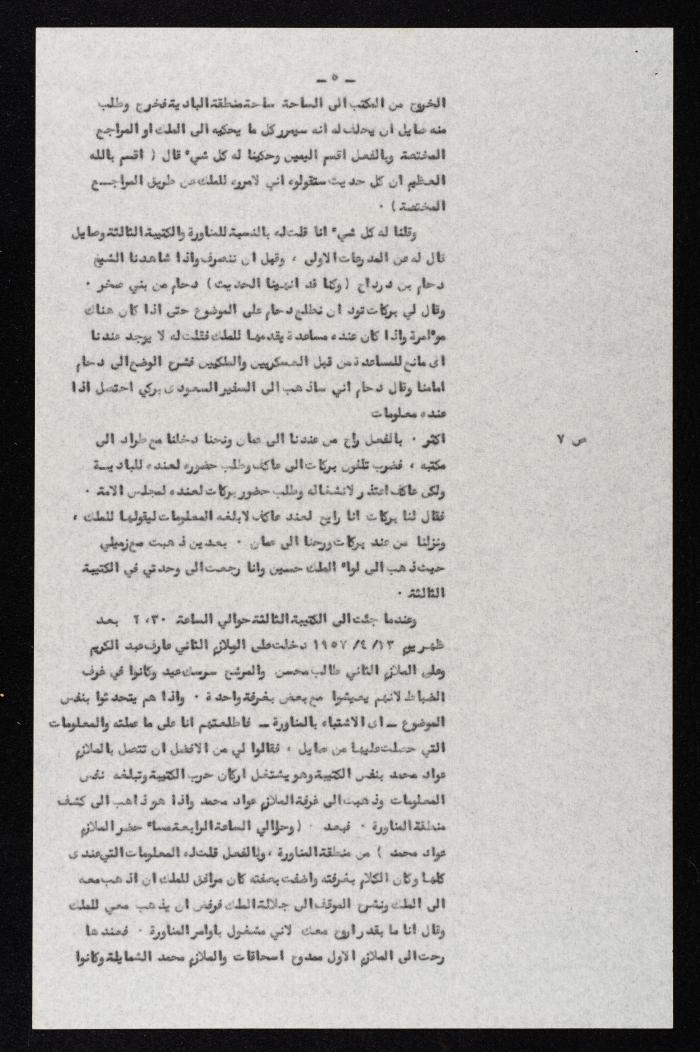 ـ ٥ ـ
الخروج من المكتب الى الساحة ساحة منطقة البادية فخرج وطلب
منه صايل ان يحلف له انه سيمرر كل ما يحكيه الى الملك او المراجع
المختصة وبالفعل اقسم اليمين وحكينا له كل شيء قال ( اقسم بالله
العظيم ان كل حديث ستقولوه اني لامرره للملك عن طريق المراجـــع
المختصة ) ٠
وقلنا له كل شيء انا قلت له بالنسبة للمناورة والكتيبة الثالثة وصايل
قال له عن المدرعات الاولى ، وقبل ان ننصرف واذا شاهدنا الشيخ
دحام بن درداح (وكنا قد انهينا الحديث ) دحام من بني صخر ٠
وقال لي بركات تود ان نطلع دحام على الموضوع حتى اذا كان هناك
مؤامرة واذا كان عنده مساعدة يقدمها للملك فقلت له لا يوجد عندنا
اى مانع للمساعدة من قبل العسكريين والملكيين فشرح الوضع الى دحام
امامنا وقال دحام اني ساذهب الى السفير السعودى بركي احتصل اذا
عنده معلومات
اكثر ٠ بالفعل راح من عندنا الى عمان ونحنا دخلنا مع طراد الى
ص ٧
مكتبه ، فضرب تلفون بركات الى عاكف وطلب حضوره لعنده للباديـــة
ولكن عاكف اعتذر لانشغاله وطلب حضور بركات لعنده لمجلس الامة ٠
فقال لنا بركات انا رايح لعند عاكف لابلغه المعلومات ليقولها للملك ،
ونزلنا من عند بركات ورحنا الى عمان ٠ بعدين ذهبت مع زميلي
حيث ذهب الى لواء الملك حسين وانا رجعت الى وحدتي في الكتيبة
الثالثة ٠
وعندما جئت الى الكتيبة الثالثة حوالي الساعة ٢،٣٠ بعد
ظهر يوم ١٣/ ٤/ ١٩٥٧ دخلت على الملازم الثاني عارف عبد الكريم
وعلى الملازم الثاني طالب محسن والمرشح سرسك عيد وكانوا في غرف
الضباط لانهم يعيشوا مع بعض بغرفة واحدة ٠ واذا هم يتحدثوا بنفس
الموضوع ــ اى الاشتباه بالمناورة ــ فاطلعتهم انا على ما عملته والمعلومات
التي حصلت عليها من صايل ، فقالوا لي من الافضل ان تتصل بالملازم
عواد محمد بنفس الكتيبة وهو يشتغل اركان حرب الكتيبة وتبلغه نفس
المعلومات وذهبت الى غرفة الملازم عواد محمد واذا هو ذاهب الى كشف
منطقة المناورة ٠ فبعد ٠ (وحوالي الساعة الرابعة مساء حضر الملازم
عواد محمد ) من منطقة المناورة ، وبالفعل قلت له المعلومات التي عندى
كلها وكان الكلام بغرفته واضفت بصفته كان مرافق للملك ان اذهب معه
الى الملك ونشرح الموقف الى جلالة الملك فرفض ان يذهب معي للملك
وقال انا ما بقدر اروح معك لاني مشغول باوامر المناورة ٠ فعندها
رحت الى الملازم الاول ممدوح اسحاقات والملازم محمد الشمايلة وكانوا